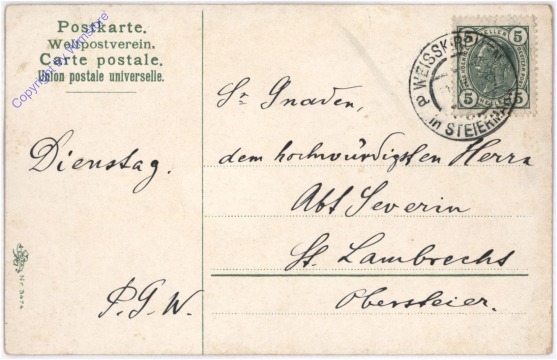 Postkarte.
Weltpostverein.
Carte postale.
Union postale universelle.
Dienstag.
P. G. W.
Sr Gnaden,
dem hochwürdigsten Herrn
Abt Severin
St. Lambrechts
Obersteier.
5 HELLER 5
5 HELLER 5
WEISSKIRCHEN
in STEIERMARK
Nr. 3474
Copyright by